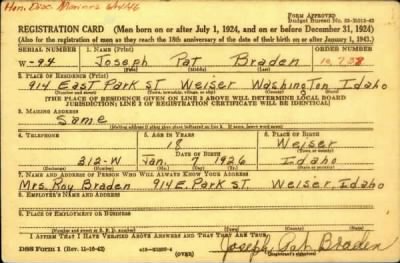 Hon. Disc. Marines 6/4/46
FORM APPROVED
REGISTRATION CARD (Men born on or after July 1, 1924, and on or before December 31, 1924)
(Also for the registration of men as they reach the 18th anniversary of the date of their birth on or after January 1, 1943.)
SERIAL NUMBER 1. NAME (Print) ORDER NUMBER
W-94 Joseph Pat Braden
(First) (Middle) (Last)
2. PLACE OF RESIDENCE (Print)
914 East Park St Weiser Washington Idaho
(THE PLACE OF RESIDENCE GIVEN ON LINE 2 ABOVE WILL DETERMINE LOCAL BOARD
JURISDICTION; LINE 2 OF REGISTRATION CERTIFICATE WILL BE IDENTICAL)
3. MAILING ADDRESS
Same
4. TELEPHONE 5. AGE IN YEARS 6. PLACE OF BIRTH
18 Weiser
DATE OF BIRTH
312-W Jan. 7 1926 Idaho
7. NAME AND ADDRESS OF PERSON WHO WILL ALWAYS KNOW YOUR ADDRESS
Mrs. Roy Braden 914 E. Park St. Weiser, Idaho
8. EMPLOYER'S NAME AND ADDRESS
9. PLACE OF EMPLOYMENT OR BUSINESS
I AFFIRM THAT I HAVE VERIFIED ABOVE ANSWERS AND THAT THEY ARE TRUE.
DSS Form 1 (Rev. 11-16-42) (OVER) Joseph Pat Braden